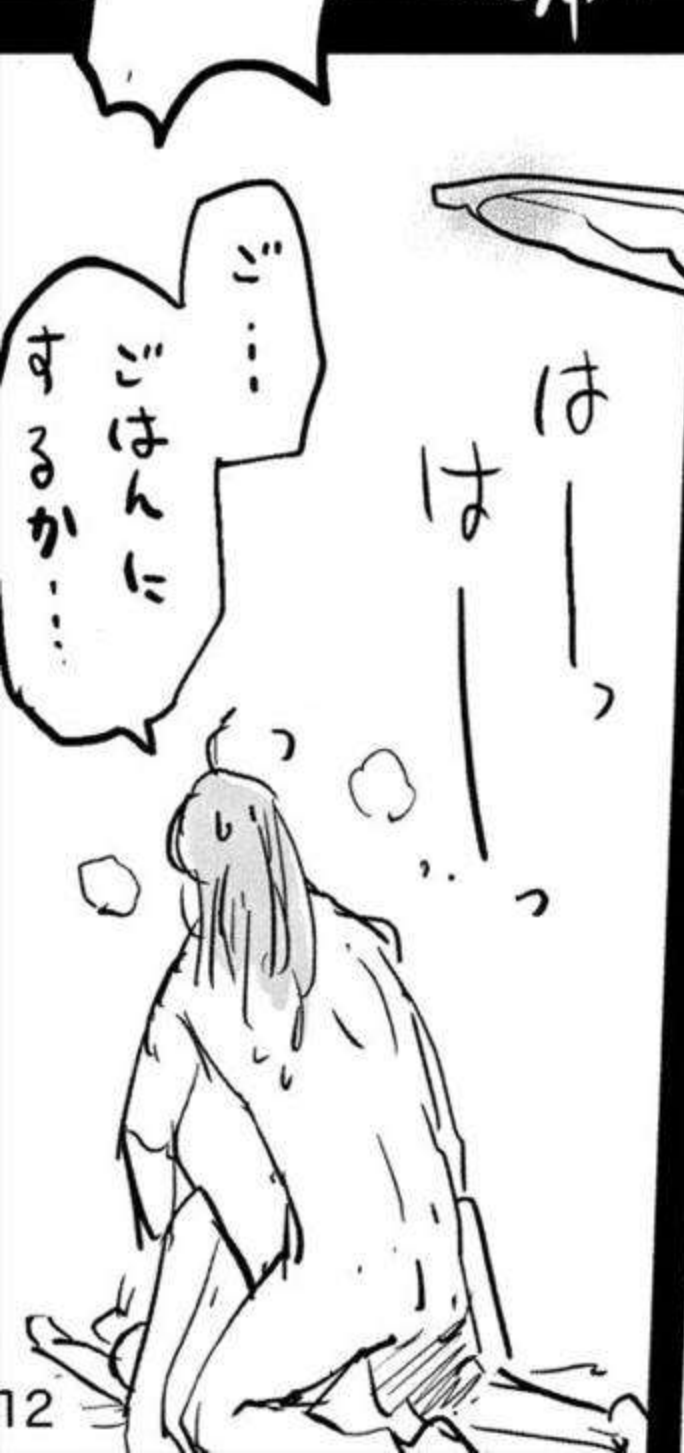 はーっ
はーっ
ご…
ごはんに
するか…
12